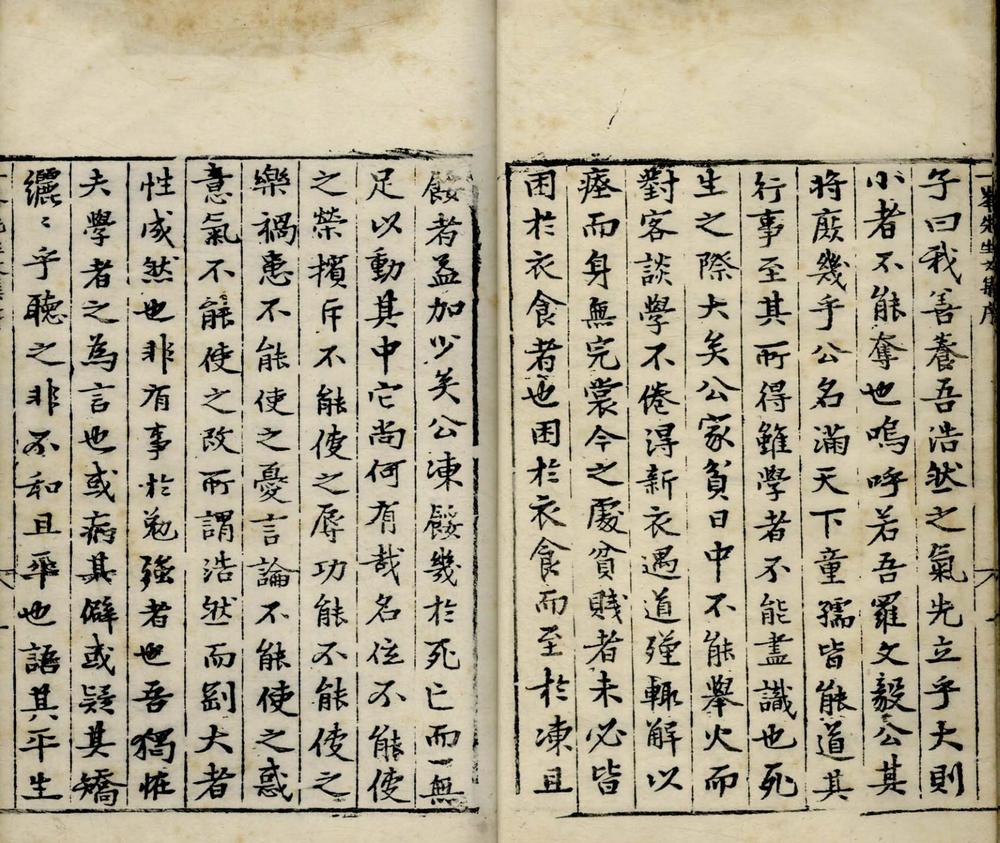 子曰我善養吾浩然之氣先立乎大則
小者不能奪也嗚呼若吾羅文毅公其
將庶幾乎公名滿天下童孺皆能道其
行事至其所得雖學者不能盡識也死
生之際大矣公家貧日中不能舉火而
對客談學不倦得新衣遇道殣輒解以
瘞而身無完裳今之處貧賤者未必皆
困於衣食者也困於衣食而至於凍且
餒者益加少矣公凍餒幾於死亡而一無
足以動其中它尚何有哉名位不能使
之榮擯斥不能使之辱功能不能使之
樂禍患不能使之憂言論不能使之惑
意氣不能使之改所謂浩然而剛大者
性成然也非有事於勉強者也吾獨恠
夫學者之為言也或病其僻或疑其矯
纚〻乎聽之非不和且平也語其平生